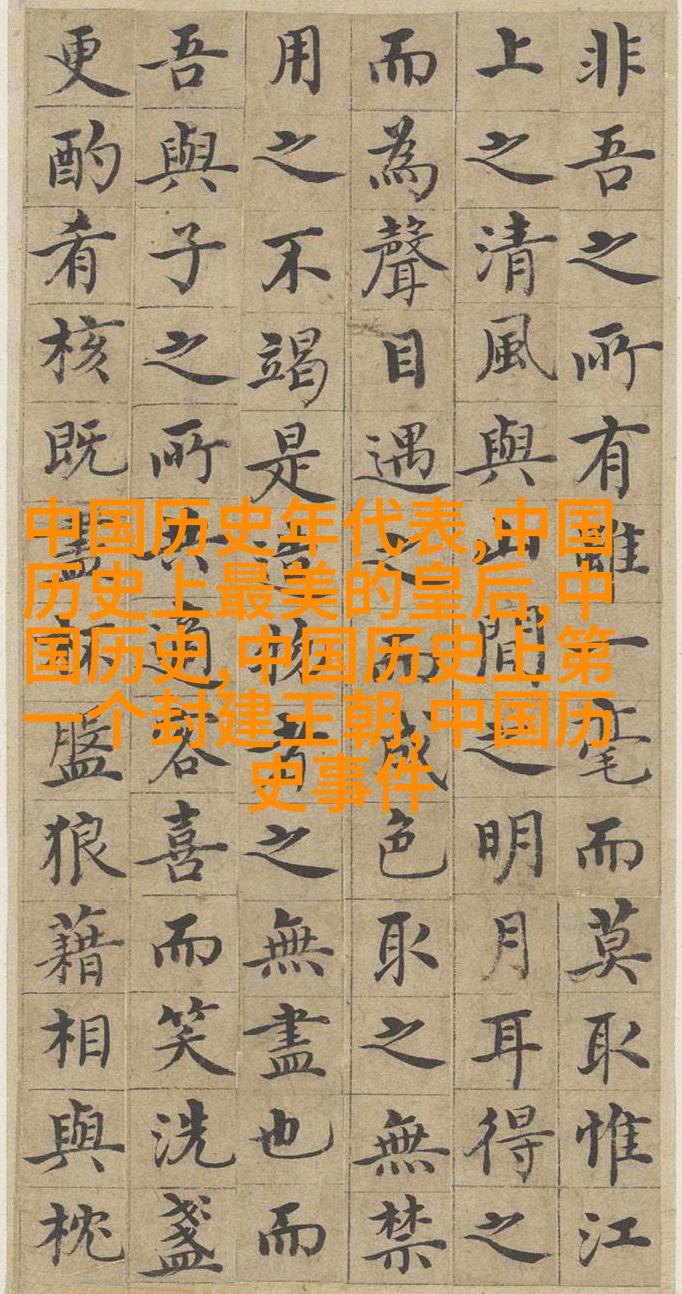 非吾之所有雖一毫而莫取惟江
上之清風與山間之明月耳得之
而為聲目遇之而成色取之無禁
用之不竭是造物者之無盡也而
吾與子之所共適客喜而笑洗盞
更酌肴核既盡盤狼藉相與枕
中国历史年代表,中国
历史上最美的皇后,中
国历史,中国历史上第
一个封建王朝,中国历
史事件